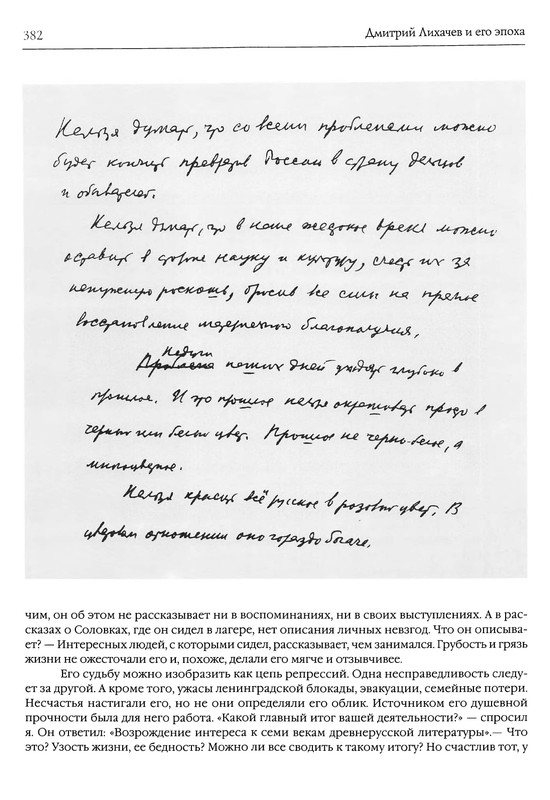 382
Дмитрий Лихачев и его эпоха
Нельзя думать, что со всеми проблемами можно
будет кончить превратив Россию в страну дельцов
и
Нельзя думать, что в наше жестокое время можно
оставить в стороне науку и культуру, счесть их за
ненужную роскошь, бросив все силы на прямое
восстановление материального благополучия.
Недуги
Проблема наших дней уходят глубоко в
прошлое. И это прошлое нельзя окрашивать просто в
черный или белый цвет. Прошлое не черно-белое, а
многоцветное.
Нельзя красить всё русское в розовый цвет. В
цветовом отношении оно гораздо богаче.
чим, он об этом не рассказывает ни в воспоминаниях, ни в своих выступлениях. А в рас-
сказах о Соловках, где он сидел в лагере, нет описания личных невзгод. Что он описыва-
ет? — Интересных людей, с которыми сидел, рассказывает, чем занимался. Грубость и грязь
жизни не ожесточали его и, похоже, делали его мягче и отзывчивее.
Его судьбу можно изобразить как цепь репрессий. Одна несправедливость следу-
ет за другой. А кроме того, ужасы ленинградской блокады, эвакуации, семейные потери.
Несчастья настигали его, но не они определяли его облик. Источником его душевной
прочности была для него работа. «Какой главный итог вашей деятельности?» — спросил
я. Он ответил: «Возрождение интереса к семи векам древнерусской литературы».— Что
это? Узость жизни, ее бедность? Можно ли все сводить к такому итогу? Но счастлив тот, у